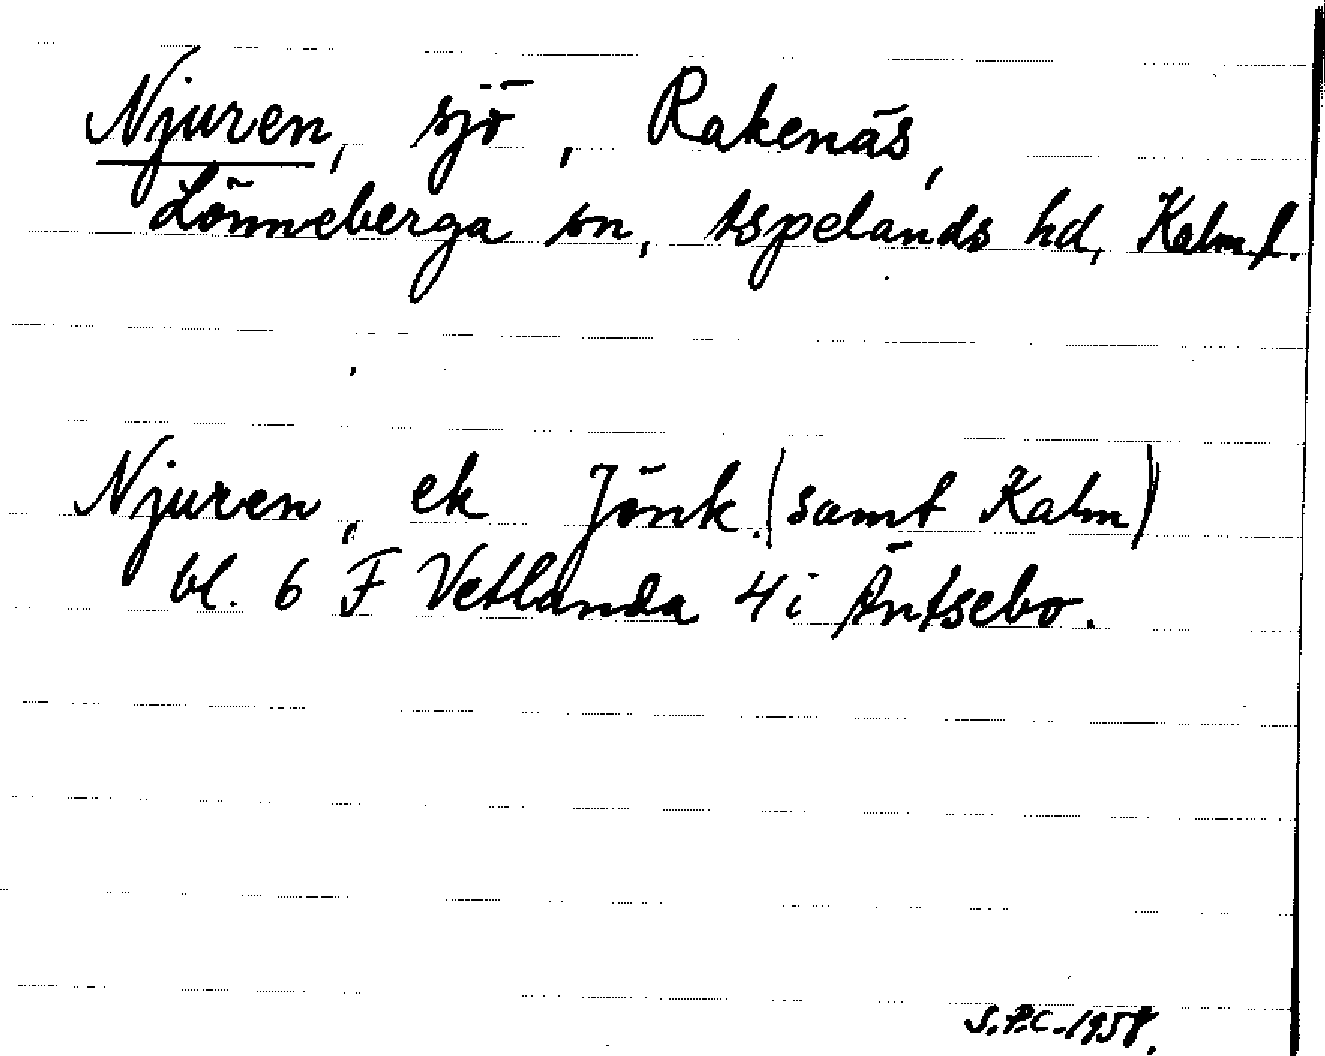 Njuren, sjö, Rakenäs,
Lönneberga sn, Aspelands hd, Kalm. l.
Njuren, ek Jönk. (samt Kalm)
bl. 6 F Vetlanda 4 i Äntsebo.
S.P.C. 1958.